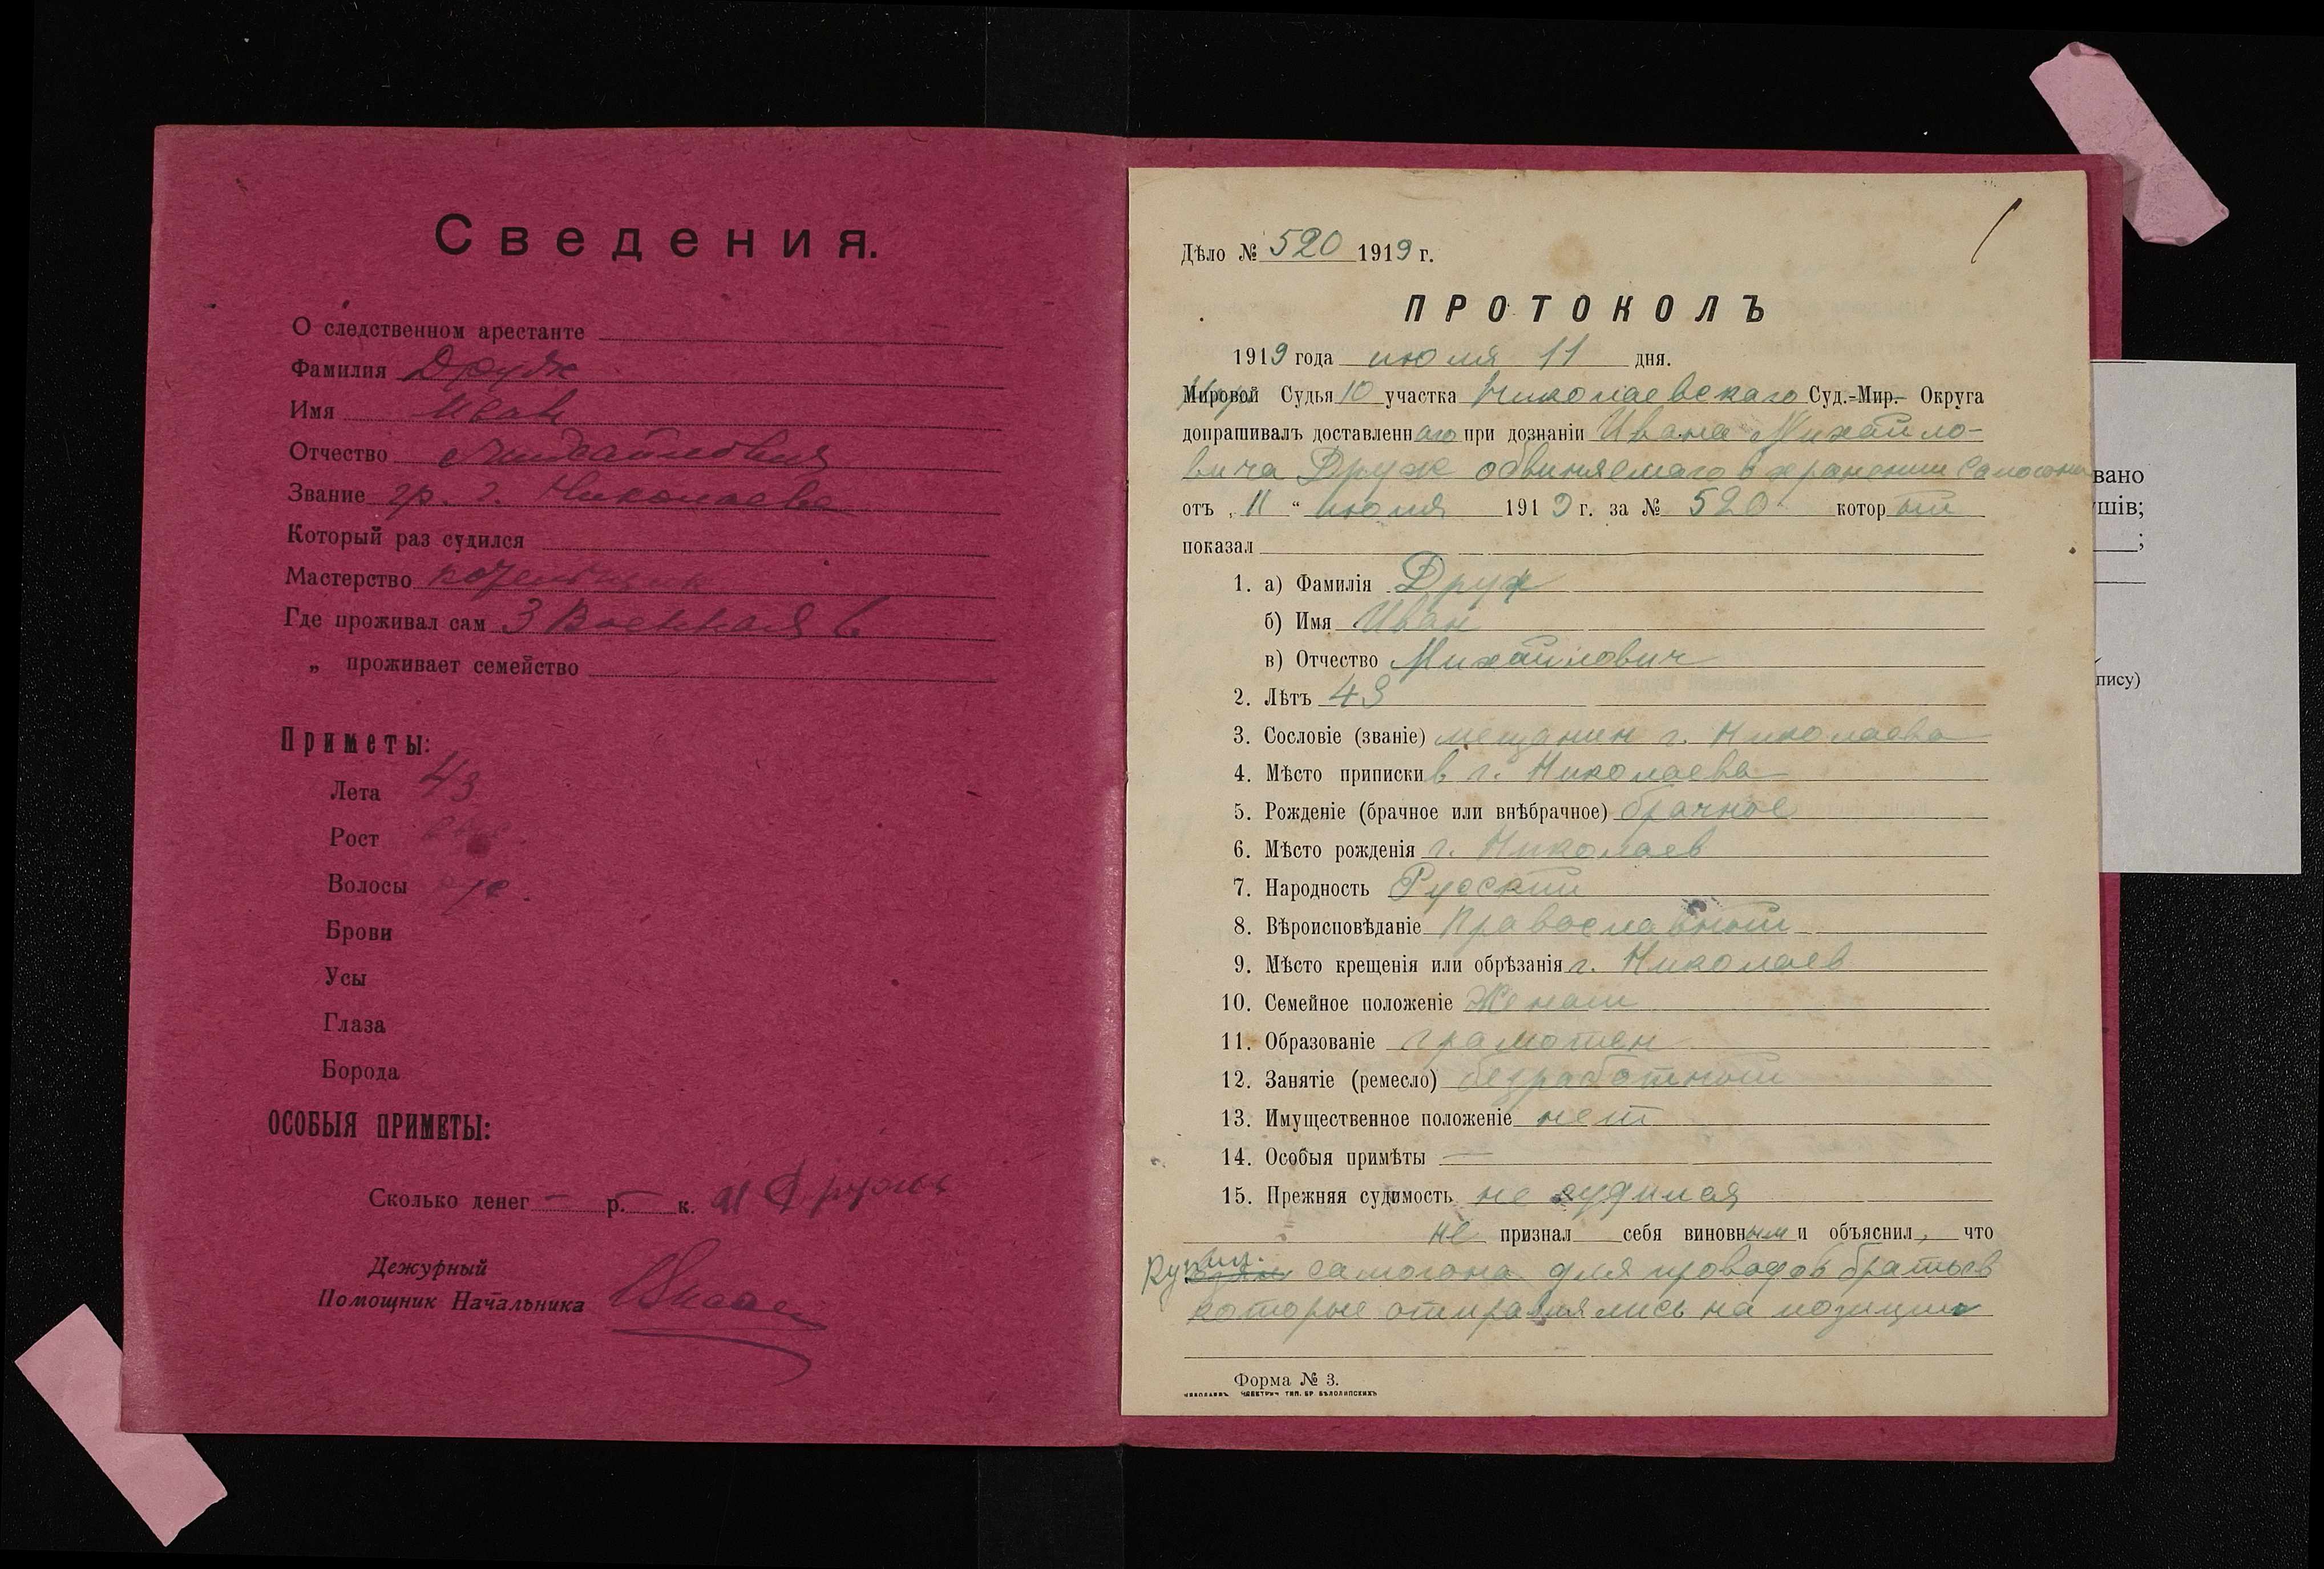 Сведения.
О следственном арестанте
Фамилия Друж
Имя Иван
Отчество Михайлович
Звание гр. г. Николаева
Который раз судился
Мастерство котельщик
Где проживал сам 3 Военная 6
„ проживает семейство
Приметы:
Лета 43
Рост
Волосы рус.
Брови
Усы
Глаза
Борода
ОСОБЫЯ ПРИМЕТЫ:
Сколько денег — р. — к. И Друж
Дежурный
Помощник Начальника
Дѣло № 520 1919 г.
ПРОТОКОЛЪ
1919 года июля 11 дня.
Мировой Судья 10 участка Николаевскаго Суд.-Мир.- Округа
допрашивалъ доставленнаго при дознаніи Ивана Михайло-
вича Друж обвиняемаго в хранении самогона
отъ „ 11 “ июля 1919 г. за № 520 который
показал
1. а) Фамилія Друж
б) Имя Иван
в) Отчество Михайлович
2. Лѣтъ 43
3. Сословіе (званіе) мещанин г. Николаева
4. Мѣсто приписки в г. Николаева
5. Рожденіе (брачное или внѣбрачное) брачное
6. Мѣсто рожденія г. Николаев
7. Народность Русский
8. Вѣроисповѣданіе Православный
9. Мѣсто крещенія или обрѣзанія г. Николаев
10. Семейное положеніе Женат
11. Образованіе грамотен
12. Занятіе (ремесло) безработный
13. Имущественное положеніе нет
14. Особыя примѣты —
15. Прежняя судимость не судился
не признал себя виновным и объяснил, что
купил самогона для проводов братьев
которые отправлялись на позицию
Форма № 3.
вано
шів;
;
пису)